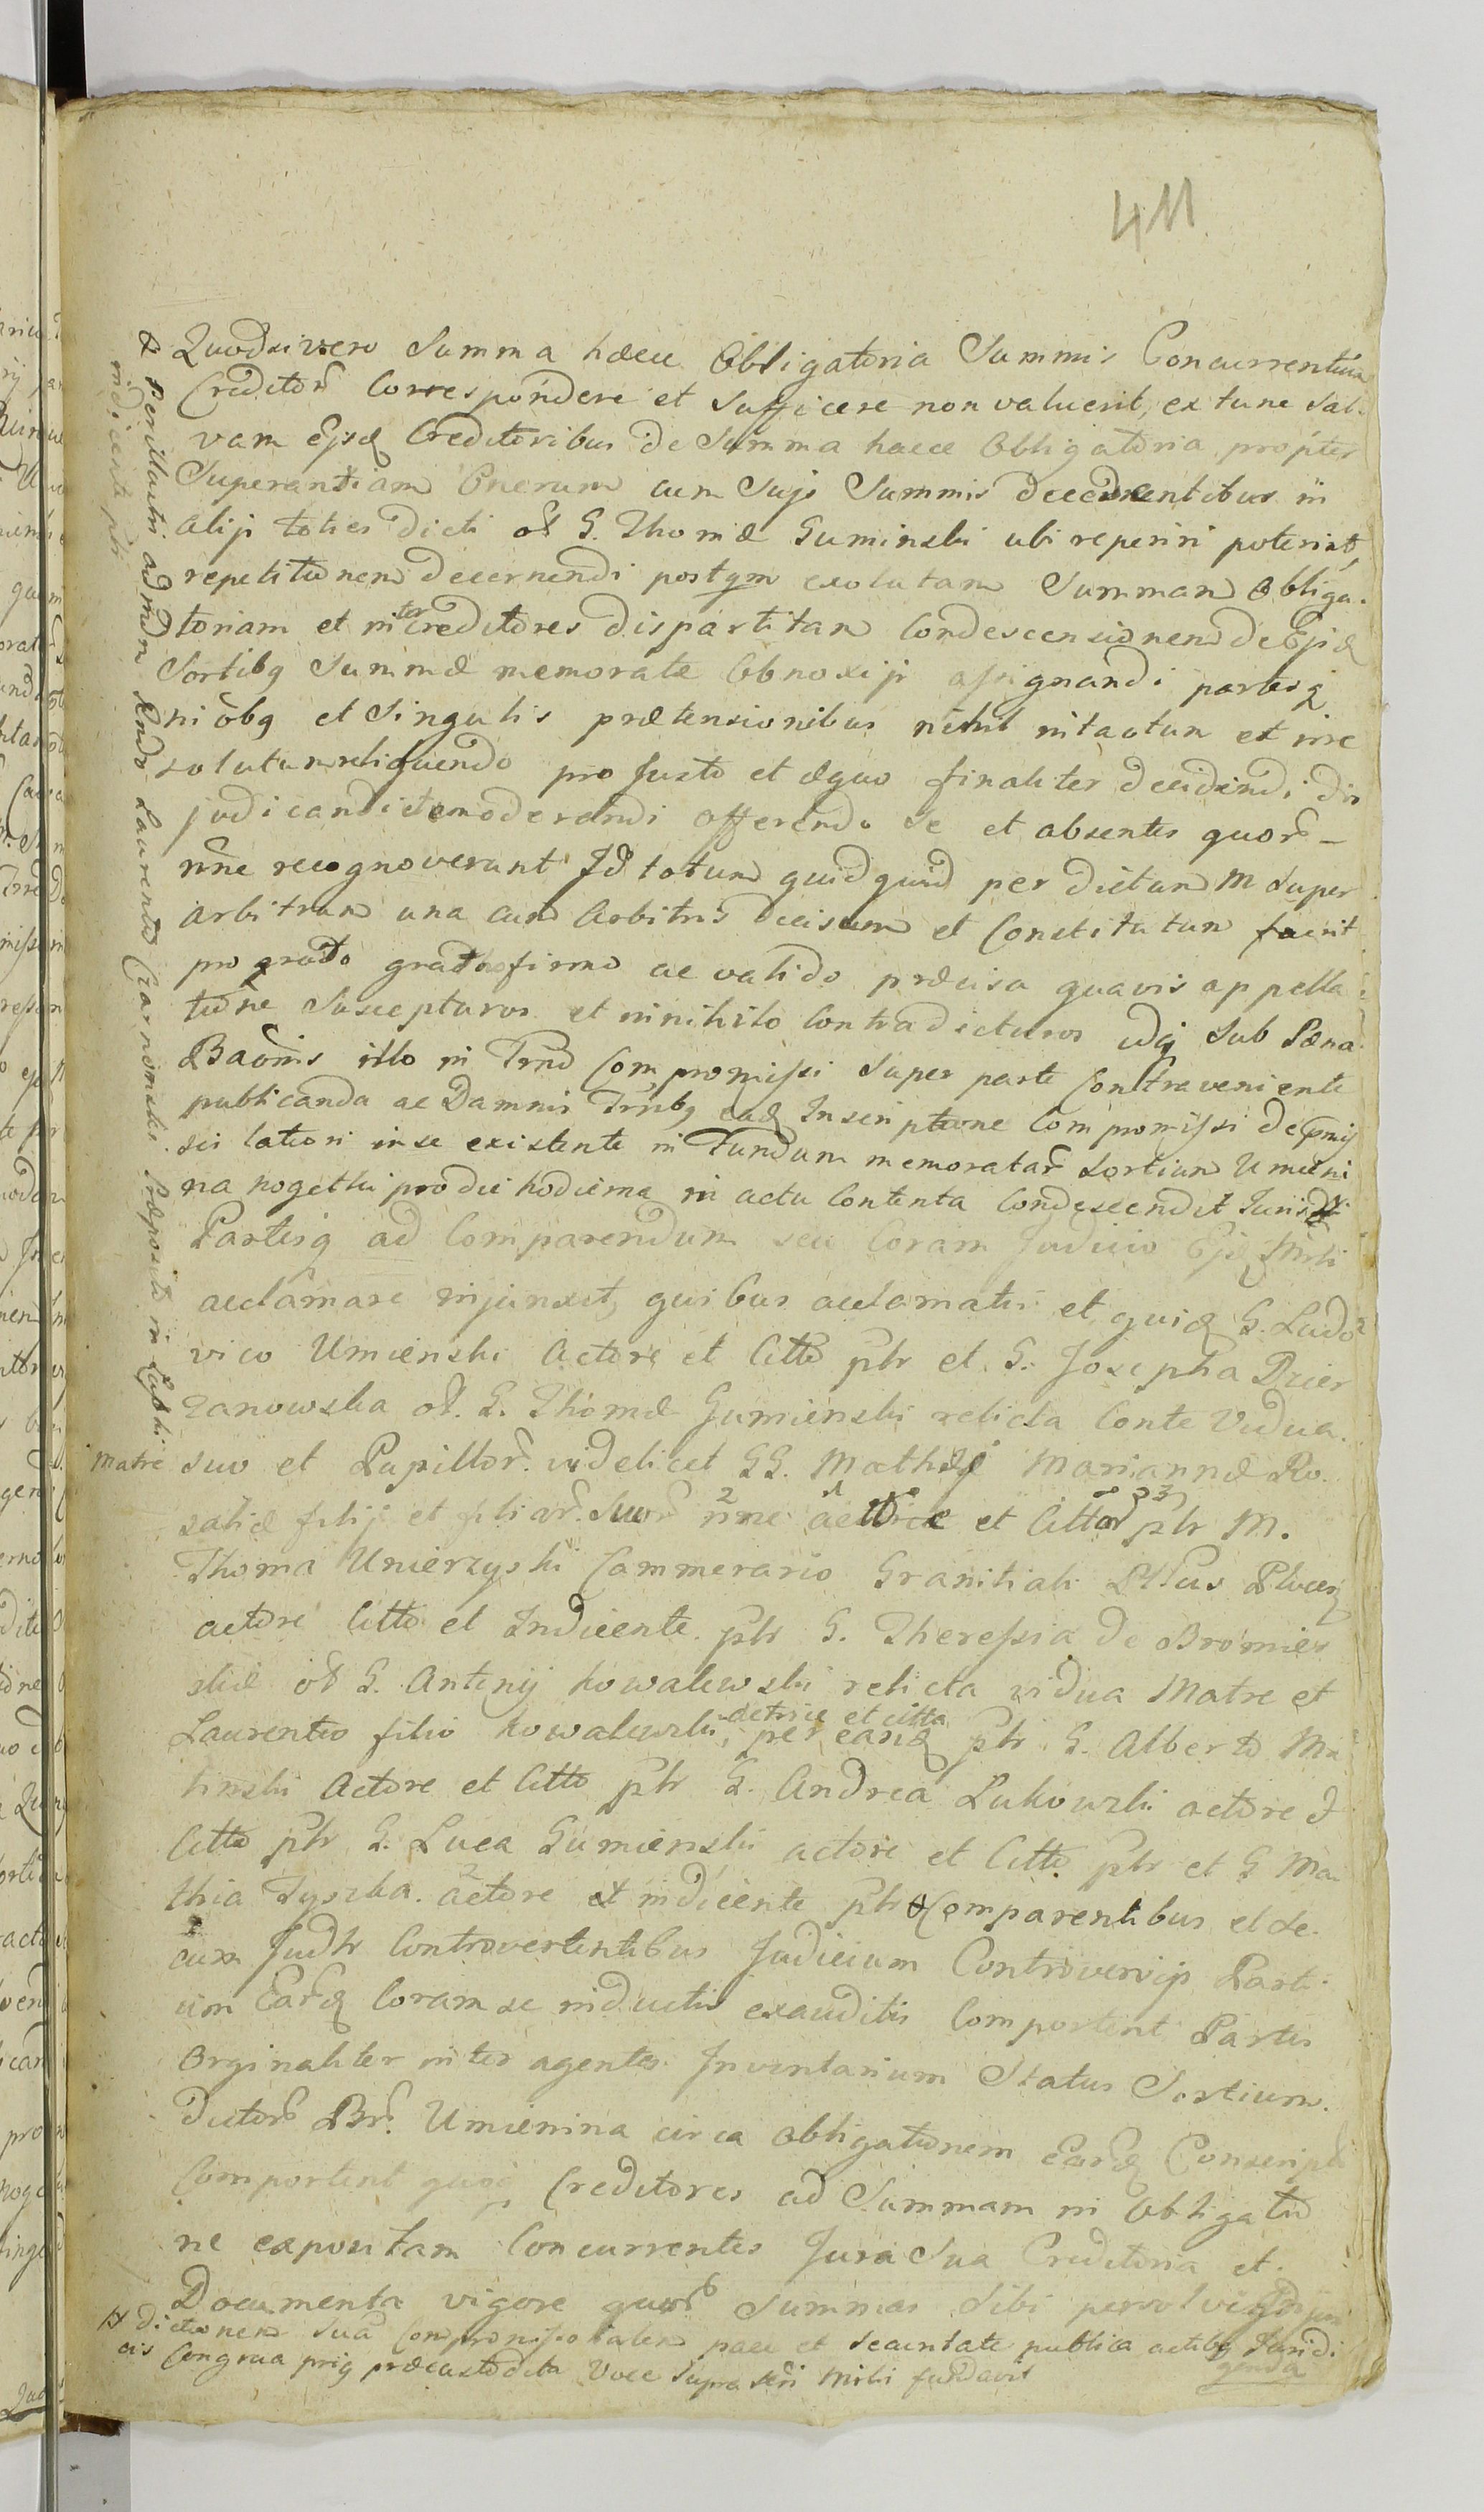 411
Quodsi vero Summa haece Obligatoria Summis Concurrentium
Creditor Correspondere et sufficere non valuerit, ex tunc sal-
vam Ejsd Creditoribus de Summa haece Obligatoria propter
Superantiam Onerum cum Sujs Summis decedentibus in
alijs toties dicti ol G. Thomæ Guminski ubi reperiri poterint,
repetitionem decernendi postqm exolutam Summam Obliga-
toriam et inter Creditores dispartitam Condescensionem de Ejsd
Sortibq Summæ memoratæ Obnoxijs assignandi partesq
in obq et Singulis prætensionibus nihil intactum et irre
solutum reliquendo pro Justo et æquo finaliter decidendi di
judicandi et emoderandi offerendo se et absentes quor
nne recognoverunt Id totum quidquid per dictum M Super
arbitrum una cum Arbitris decisum et Constitutum fuerit
pro grato firmo ac valido præcisa quavis appella
tione Suscepturos et in nihilo Contradicturos idq Sub Pæna
Baonis illo in Trno Compromissi Super parte Contraveniente
publicanda ac Damnis Trrbq ead Inscriptione Compromissi
lationi in se existente in Fundum memoratar Sortium Umieni
na nogetki pro die hodierna in actu Contenta Condescendit Jurisd
Partesq ad Comparendum seu Coram Judicio Ejsd Mrli
acclamare injunxit, quibus acclamatis et quid G. Ludo
vico Umienski Actore et Citto ptr et G. Josepha Dzier
zanowska ol. G. Thomæ Gumienski relicta Conte Vidua
matre suo et Pupillor. videlicet GG. Mathæj Mariannæ Ro.
saliæ filij et filiar. Suor nne actrice et Cittor ptr M.
Thoma Unierzyski Cammerario Granitiali Pltus Plocen
actore Citto et Indicente ptr G. Theressia de Bromier
skie ol G. Antonij Kowalewski relicta vidua Matre et
Laurentio filio Kowalewski, actrice et citta per eand ptr G. Alberto Ma
linski Actore et Citto ptr G. Andrea Lukowski actore et
Citto ptr G. Luca Gumienski actore et Citto ptr et G Ma
thia Tyszka actore et indicente ptr Comparentibus et se
cum Judtr Controvertentibus Judicium Controversijs Parti-
um Eard Coram se inductis exauditis Comportent Partes
Orginaliter inter agentes Inventarium Status Sortium
dictor Br. Umienina circa Obligationem Eard Conscript
Comportent quoq Creditores ad Summam in Obligatio
ne expositam Concurrentes Jura Sua Creditoria et
Documenta vigore quor Summas Sibi persolvi
ditionem sua Compromissolalem pace et securitate publica actibq Juridi
cis Congrua priq præcustodita Voce Supra Mrli fundavit
genda
Perillustri admdm Rndo Laurentio Czarnomski Præposito in Lepki
indicente ptr